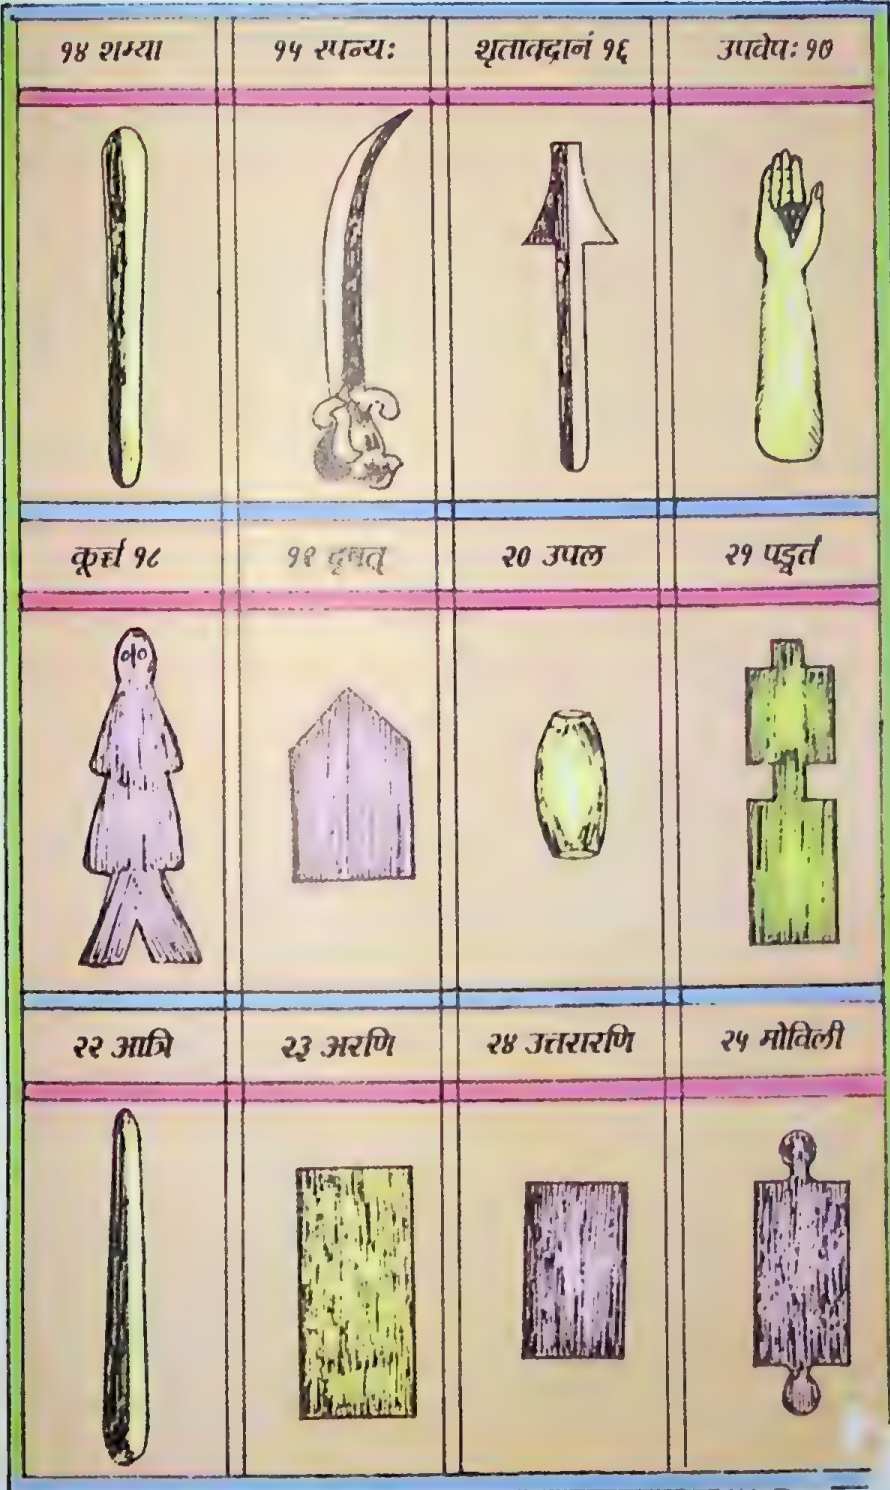 १४ शम्या
१५ स्पन्यः
शृतावद्रानं १६
उपवेषः १७
कूर्च्च १८
१९ दृषत्
२० उपल
२१ षड्वर्त
२२ आत्रि
२३ अरणि
२४ उत्तरारणि
२५ मोविली